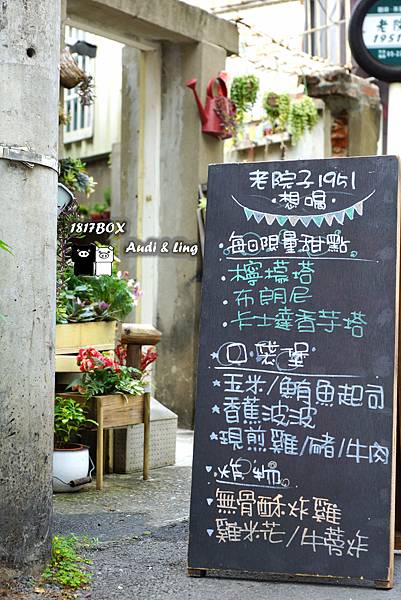 老院子
1951
老院子1951
想喝
每日限量甜點
檸檬塔
布朗尼
卡士達香芋塔
口袋堡
玉米/鮪魚起司
香蕉波波
現煎雞/豬/牛肉
炸物
無骨酥炸雞
雞米花/牛蒡炸
1817BOX
Audi & Ling